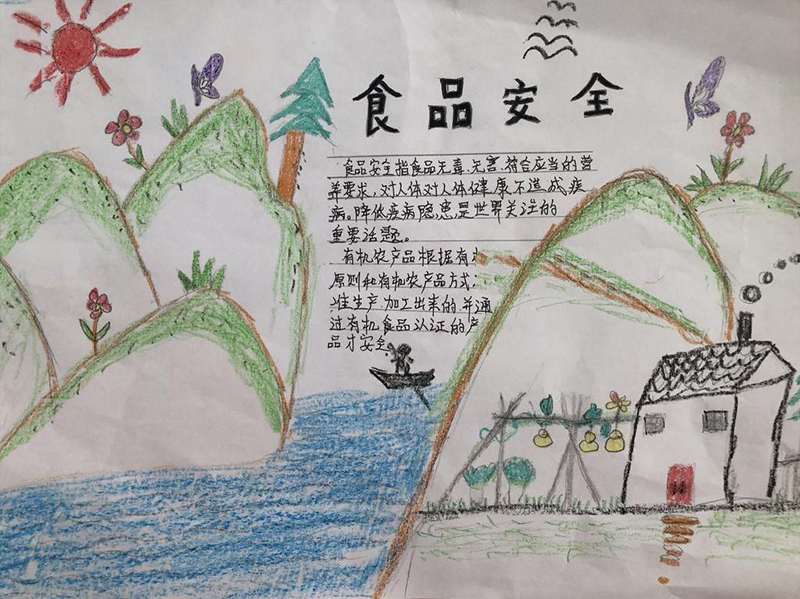 食品安全
食品安全指食品无毒、无害、符合应当的营
养要求，对人体对人体健康不造成疾
病。降低疫病隐患，是世界关注的
重要话题。
有机农产品根据有
原则和有机农产品方式
准生产加工出来的并通
过有机食品认证的产
品才安全